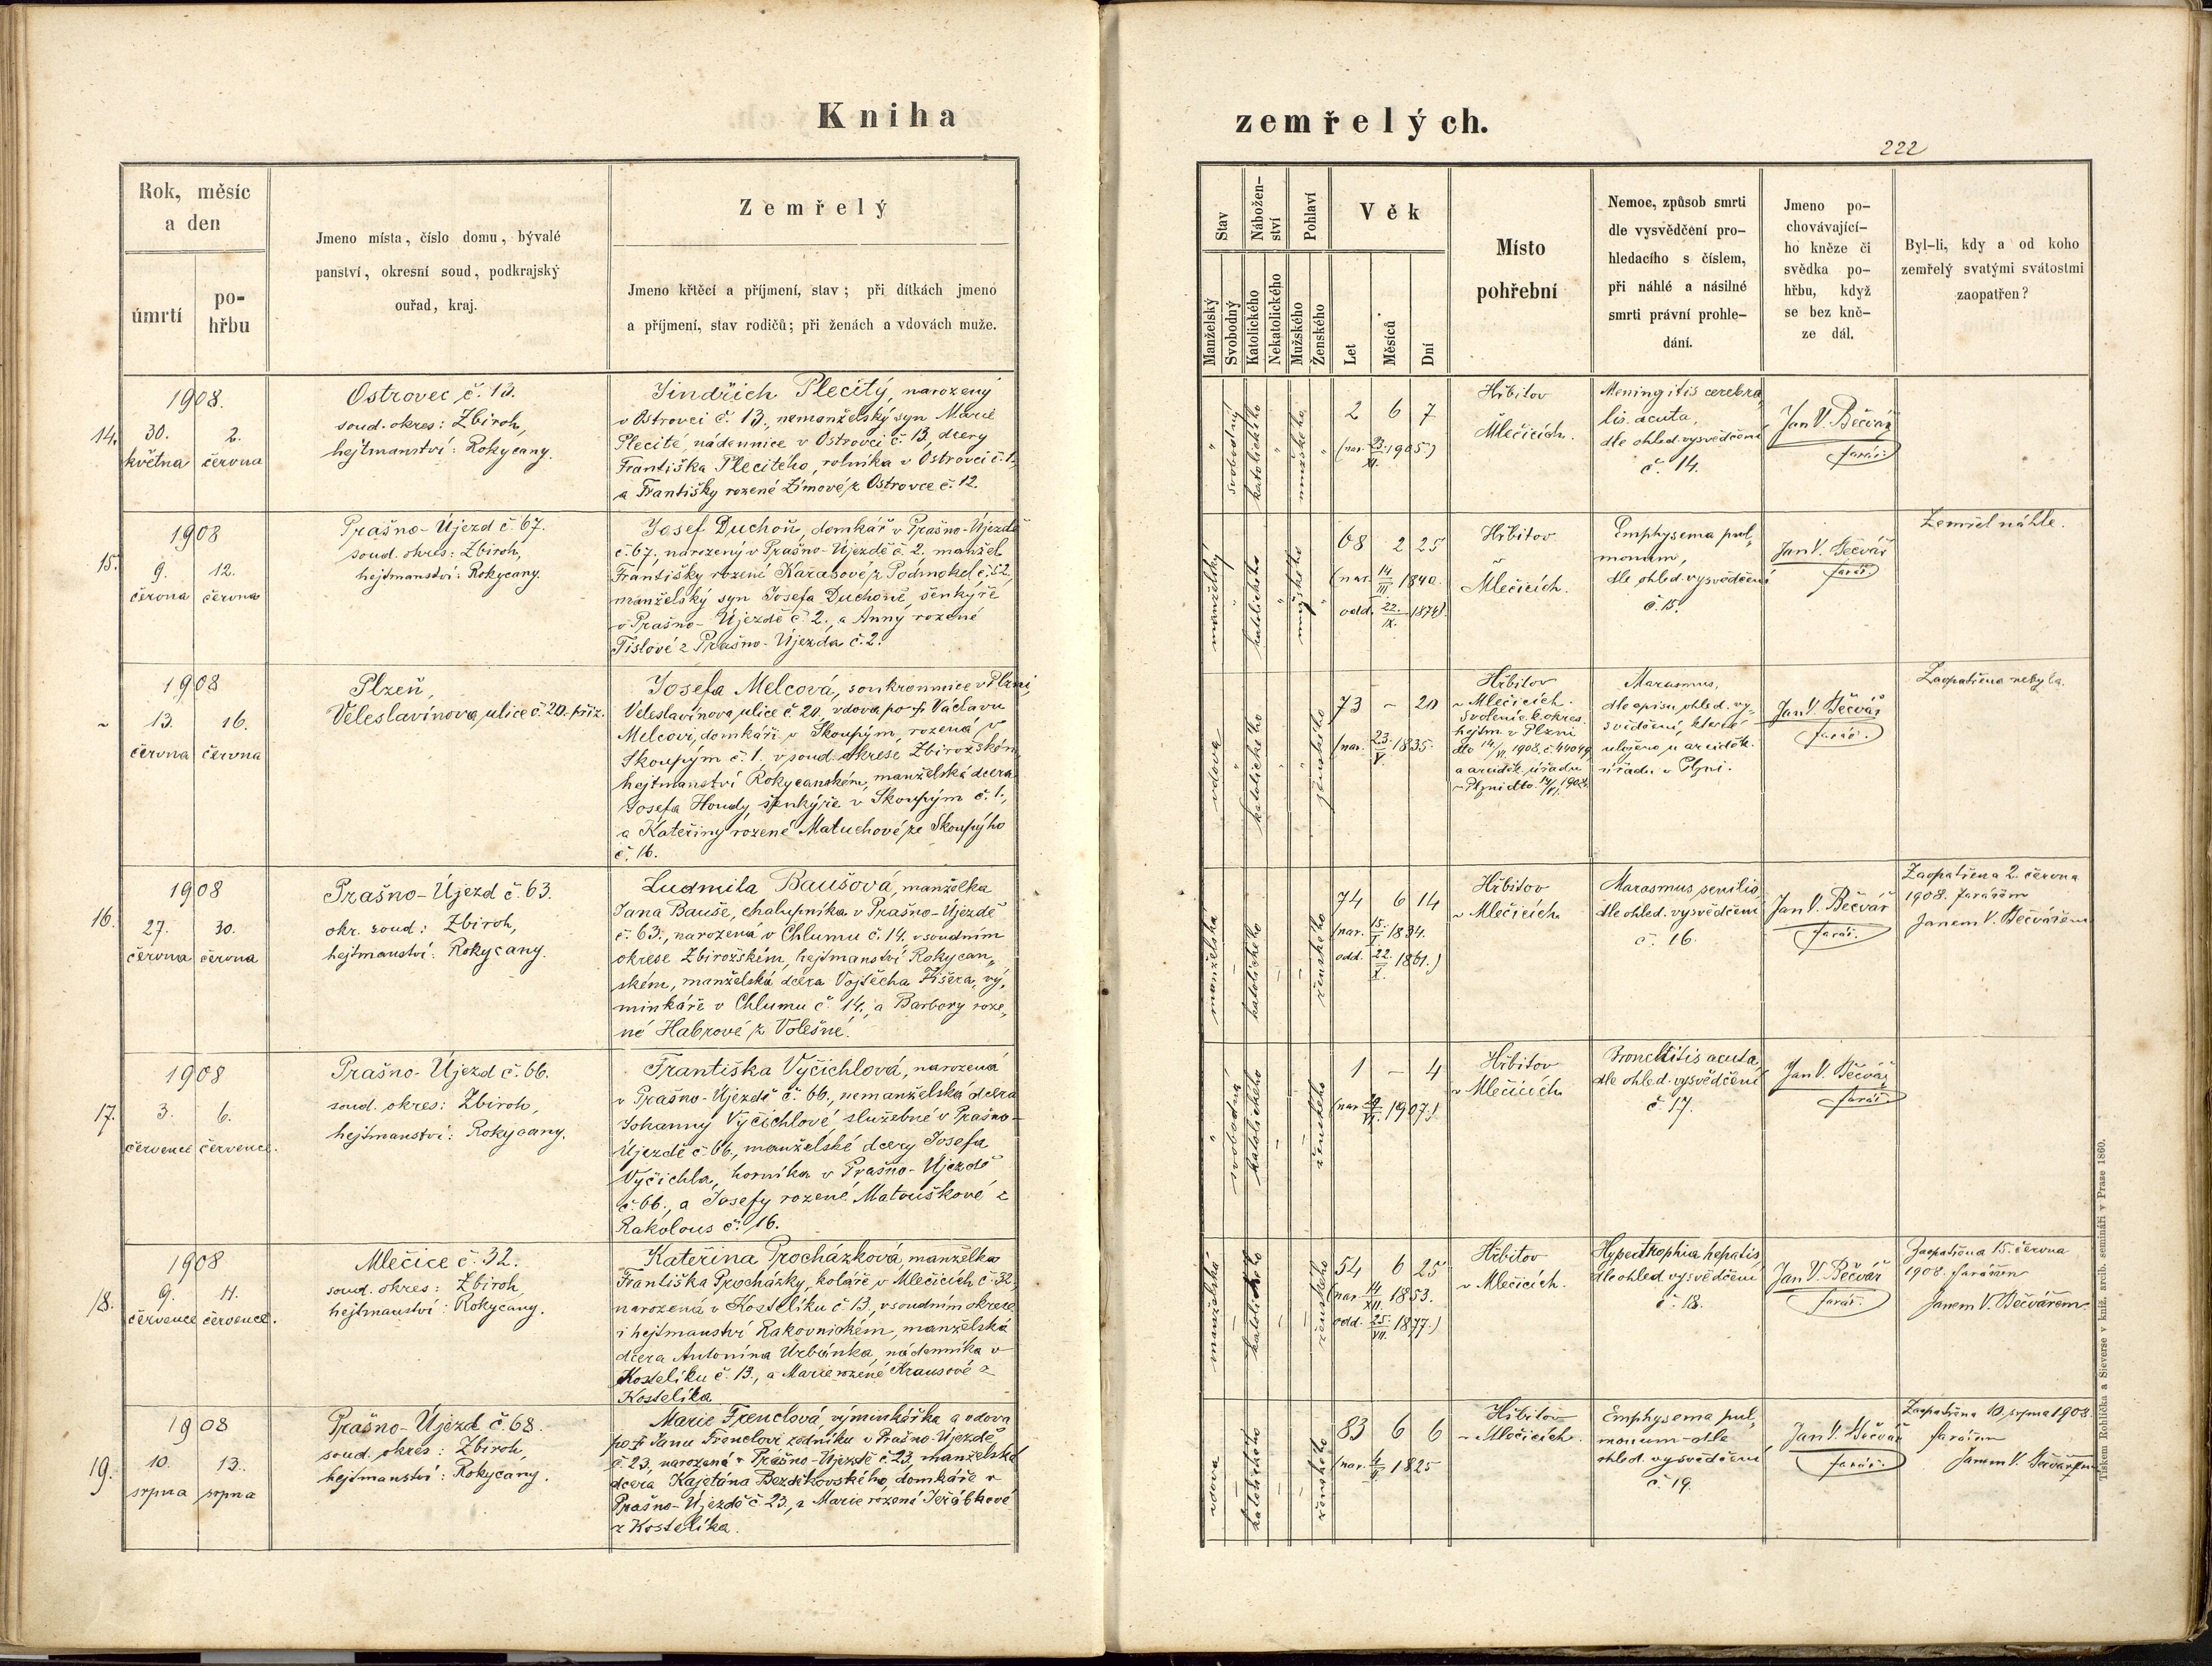 Kniha
Rok, měsíc
a den
úmrtí
po-
hřbu
Jmeno místa, číslo domu, bývalé
panství, okresní soud, podkrajský
ouřad, kraj.
Zemřelý
Jmeno křtěcí a příjmení, stav; při dítkách jmeno
a příjmení, stav rodičů; při ženách a vdovách muže.
14.
1908.
30.
května
2.
června
Ostrovec č. 13.
soud. okres: Zbiroh,
hejtmanství: Rokycany.
Jindřich Plecitý, narozený
v Ostrovci č. 13., nemanželský syn Marie
Plecité, nádennice v Ostrovci č. 13, dcery
Františka Plecitého, rolníka v Ostrovci č. 1.
a Františky rozené Zímové z Ostrovce č. 12.
15.
1908
9.
června
12.
června
Prašno-Újezd č. 67.
soud. okres: Zbiroh,
hejtmanství: Rokycany.
Josef Duchoň, domkář v Prašno-Újezdě
č. 67, narozený v Prašno-Újezdě č. 2. manžel
Františky rozené Kařasové z Podmokel č. 52,
manželský syn Josefa Duchoně šenkýře
v Prašno-Újezdě č. 2., a Anny rozené
Fislové z Prašno-Újezda č. 2.
~
1908
13.
června
16.
června
Plzeň,
Veleslavínova ulice č. 20. příz.
Josefa Melcová, soukromnice v Plzni,
Veleslavínova ulice č. 20, vdova po † Václavu
Melcovi, domkáři v Skoupým, rozená v
Skoupým č. 1. v soud. okrese Zbirožském
hejtmanství Rokycanském, manželská dcera
Josefa Houdy, šenkýře v Skoupým č. 1.,
a Kateřiny rozené Matuchové ze Skoupýho
č. 16.
16.
1908
27.
června
30.
června
Prašno-Újezd č. 63.
okr. soud: Zbiroh,
hejtmanství: Rokycany.
Ludmila Baušová, manželka
Jana Bauše, chalupníka v Prašno-Újezdě
č. 63., narozená v Chlumu č. 14. v soudním
okrese Zbirožském, hejtmanství Rokycan„
ském, manželská dcera Vojtěcha Fišera, vý„
minkáře v Chlumu č. 14., a Barbory roze„
né Habrové z Volešné.
17.
1908
3.
července
6.
července.
Prašno-Újezd č. 66.
soud. okres: Zbiroh,
hejtmanství: Rokycany.
Františka Vyčichlová, narozená
v Prašno-Újezdě č. 66., nemanželská dcera
Johanny Vyčichlové, služebné v Prašno-
Újezdě č. 66., manželské dcery Josefa
Vyčichla, horníka v Prašno-Újezdě
č. 66., a Josefy rozené Matouškové z
Rakolous č. 16.
18.
1908
9.
července
11.
července.
Mlečice č. 32.
soud. okres: Zbiroh,
hejtmanství: Rokycany.
Kateřina Procházková, manželka
Františka Procházky, koláře v Mlečicích č. 32.
narozená v Kostelíku č. 13., v soudním okrese
i hejtmanství Rakovnickém, manželská
dcera Antonína Urbánka, nádenníka v
Kostelíku č. 13., a Marie rozené Krausové z
Kostelíka
19.
1908
10.
srpna
13.
srpna
Prašno-Újezd č. 68.
soud. okres: Zbiroh,
hejtmanství: Rokycany.
Marie Frenclová, výminkářka a vdova
po † Janu Frenclovi zedníku v Prašno-Újezdě
č. 23. narozená v Prašno-Újezdě č. 23, manželská
dcera Kajetána Bezděkovského, domkáře v
Prašno-Újezdě č. 23., a Marie rozené Jeřábkové
z Kostelíka.
zemřelých.
222
Stav
Manželský
Svobodný
Nábožen-
ství
Katolického
Nekatolického
Pohlaví
Mužského
Ženského
Věk
Let
Měsíců
Dní
Místo
pohřební
Nemoc, způsob smrti
dle vysvědčení pro-
hledacího s číslem,
při náhlé a násilné
smrti právní prohle-
dání.
Jmeno po-
chovávající-
ho kněze či
svědka po-
hřbu, když
se bez kně-
ze dál.
Byl-li, kdy a od koho
zemřelý svatými svátostmi
zaopatřen?
svobodný
katolického
mužského
2 6 7
(nar. 23./XI. 1905.)
Hřbitov
Mlečicích.
Meningitis cerebra„
lis acuta,
dle ohled. vysvědčení
č. 14.
Jan V. Bečvář
farář.
manželský
katolického
mužského
68 2 25
(nar. 14/III 1840.
odd. 22./IX. 1874).
Hřbitov
v
Mlečicích.
Emphysema pul„
monum,
dle ohled. vysvědčení
č. 15.
Jan V. Bečvář
farář
Zemřel náhle.
vdova
katolického
ženského
73 – 20
(nar. 23./V. 1835.
Hřbitov
v Mlečicích.
Svolenie k. okres.
hejtm. v Plzni
dto 14/VI. 1908. č. 44049
a arciděk. úřadu
v Plzni dto. 14/VI. 1908.
Marasmus,
dle opisu ohled. vy„
svědčení, které
uloženo u arciděk.
úřadu v Plzni.
Jan V. Bečvář
farář.
Zaopatřena nebyla.
manželská
katolického
ženského
74 6 14
(nar. 15./I. 1834.
odd. 22./X. 1861.)
Hřbitov
v Mlečicích
Marasmus senilis
dle ohled. vysvědčení
č. 16.
Jan V. Bečvář
farář.
Zaopatřena 2. června
1908. farářem
Janem V. Bečvářem
svobodná
katolického
ženského
1 – 4
(nar. 29/VI. 1907.)
Hřbitov
v Mlečicích
Bronchitis acuta,
dle ohled. vysvědčení
č. 17.
Jan V. Bečvář
farář.
manželská
katolického
ženského
54 6 25
(nar. 14/XII. 1853.
odd. 25./VII. 1877.)
Hřbitov
v Mlečicích.
Hypertrophia hepatis,
dle ohled. vysvědčení
č. 18.
Jan V. Bečvář
farář.
Zaopatřena 15. června
1908. farářem
Janem V. Bečvářem.
vdova
katolického
ženského
83 6 6
(nar. 4/II. 1825
Hřbitov
v Mlečicích.
Emphysema pul„
monum dle
ohled. vysvědčení
č. 19.
Jan V. Bečvář
farář.
Zaopatřena 10. srpna 1908.
farářem
Janem V. Bečvářem
Tiskem Rohlíčka a Sieverse v kníž. arcib. semináři v Praze 1860.